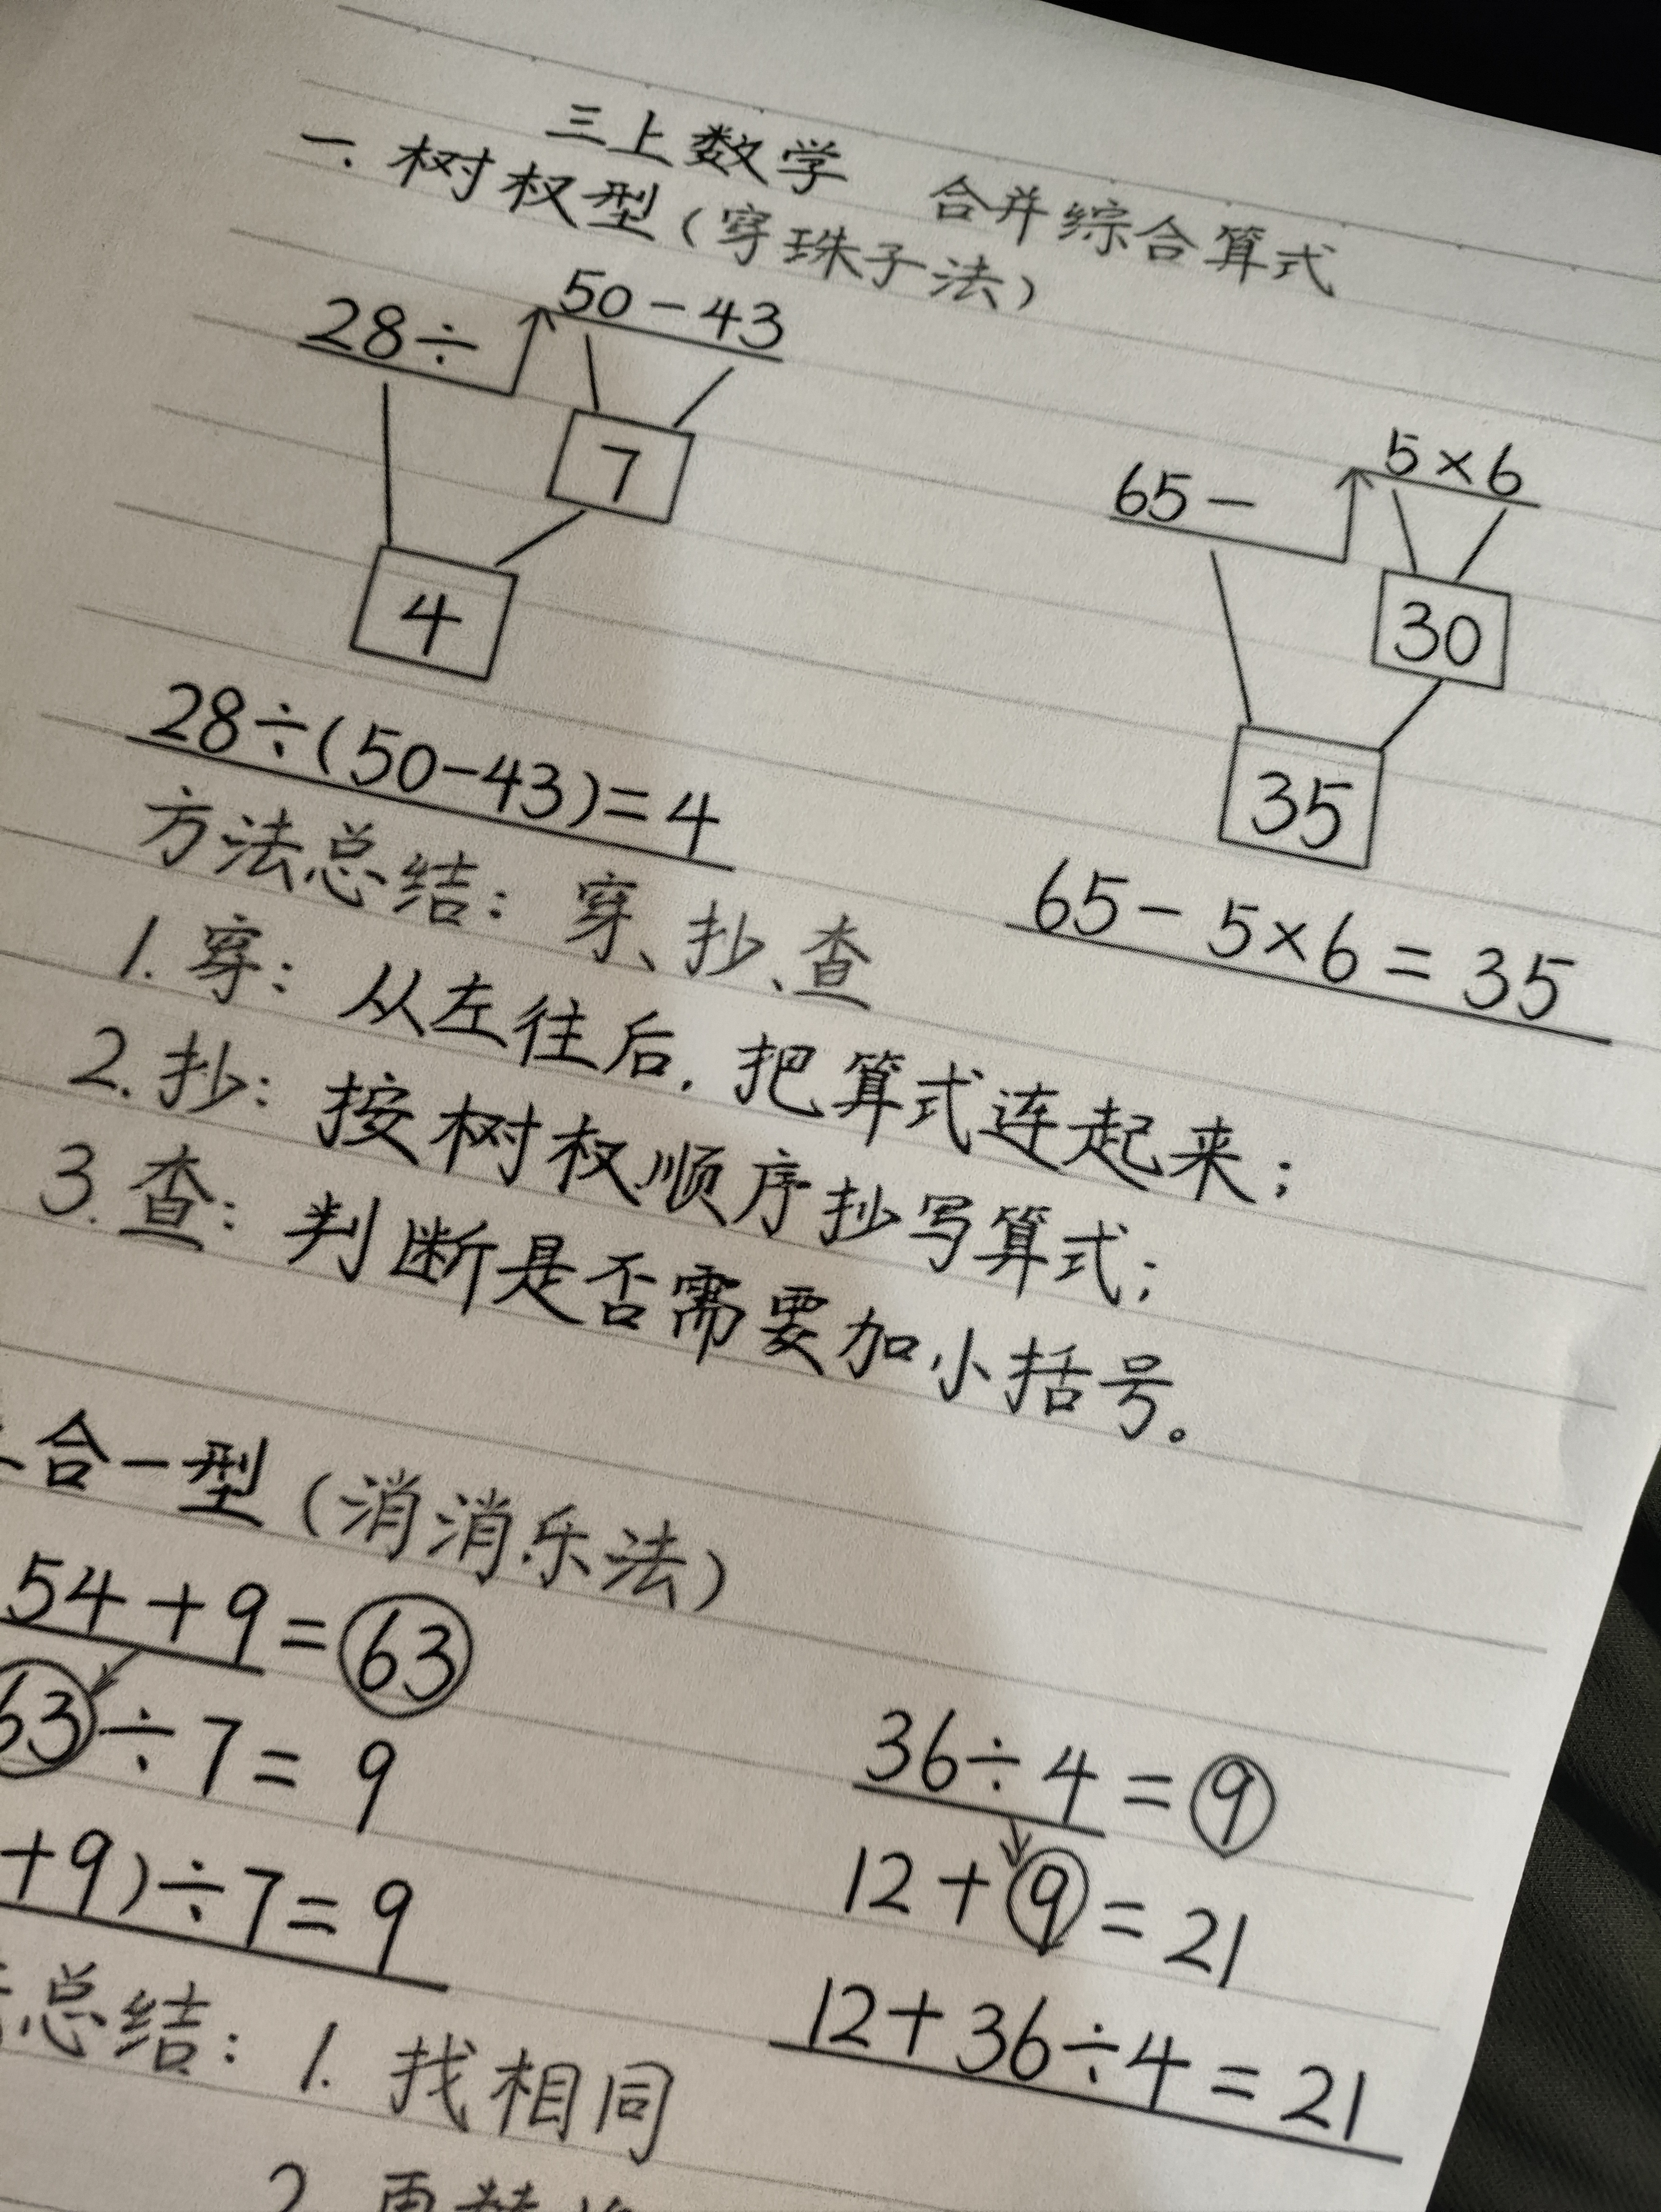 三上数学 合并综合算式
一. 树杈型（穿珠子法）
28÷ 50-43
7
4
28÷(50-43)=4
65- 5×6
30
35
65-5×6=35
方法总结：穿、抄、查
1. 穿：从左往后. 把算式连起来；
2. 抄：按树杈顺序抄写算式；
3. 查：判断是否需要加小括号。
合一型（消消乐法）
54+9=63
63÷7=9
+9)÷7=9
36÷4=9
12+9=21
12+36÷4=21
总结：1. 找相同
2. 再